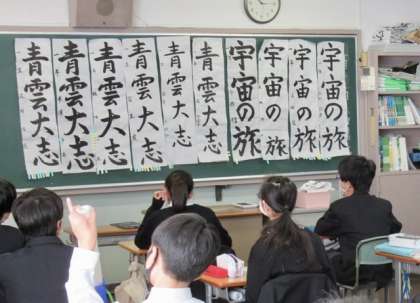 宇宙の旅
宇宙の旅
宇宙の旅
宇宙の旅
青雲大志
青雲大志
青雲大志
青雲大志
青雲大志
青雲大志